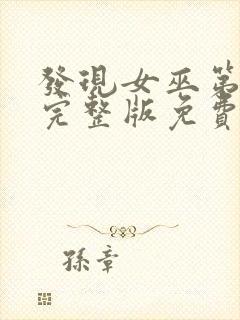 發現女巫第
完整版免費
孫章